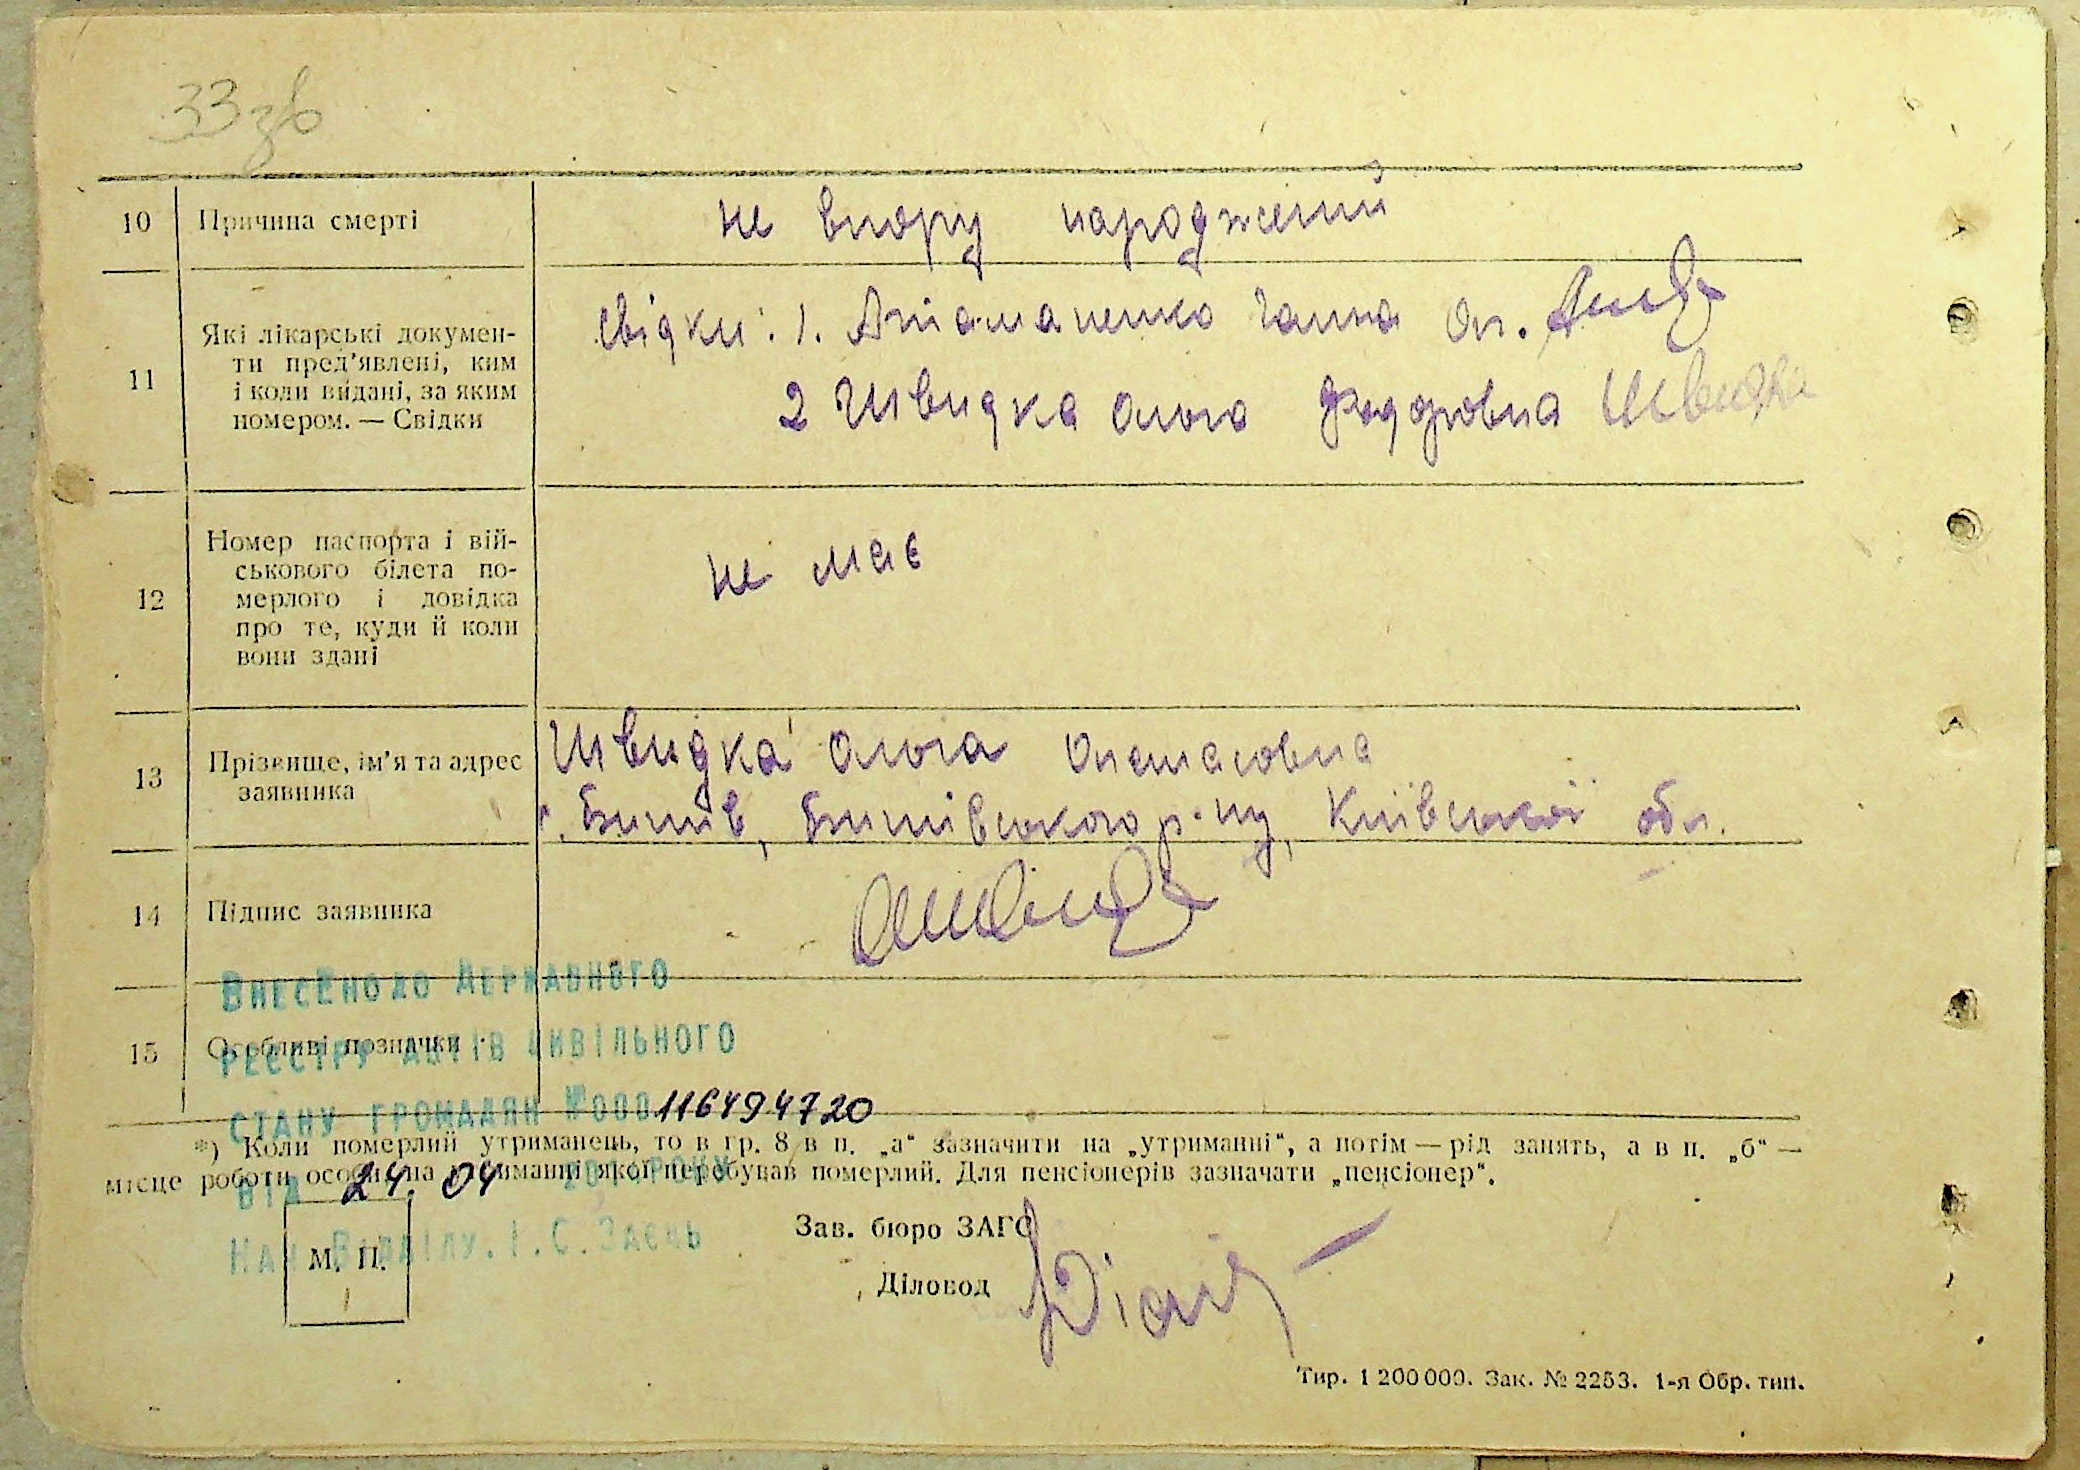 33зв
10 Причина смерті не впору народжений
11 Які лікарські докумен-
ти пред'явлені, ким
і коли видані, за яким
номером. — Свідки
Свідки: 1. Атаманенко Ганна Оп.
2 Швидка Ольга Федоровна Швидка
12 Номер паспорта і вій-
ськового білета по-
мерлого і довідка
про те, куди й коли
вони здані
не має
13 Прізвище, ім'я та адрес
заявника
Швидка Ольга
с. Бишів, Бишівського р-ну, Київської обл.
14 Підпис заявника
15 Особливі позначки
Внесено до Державного
реєстру актів цивільного
стану громадян №000116494720
від 24.04 року
Нач. Відділу. І.С.Заєць
*) Коли померлий утриманець, то в гр. 8 в п. „а“ зазначити на „утриманні“, а потім — рід занять, а в п. „б“ —
місце роботи особи, на утриманні якої перебував померлий. Для пенсіонерів зазначати „пенсіонер“.
М. П.
Зав. бюро ЗАГС
Діловод
Тир. 1 200 000. Зак. № 2253. 1-я Обр. тип.